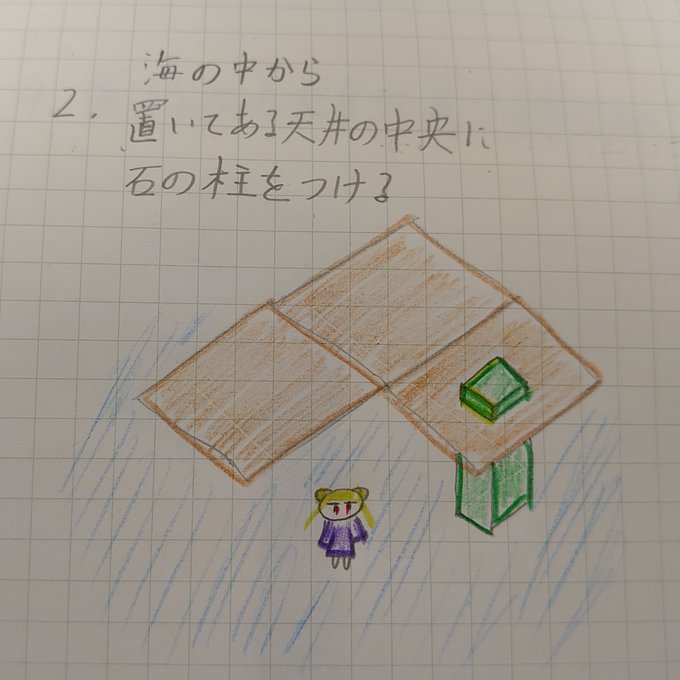 海の中から
2. 置いてある天井の中央に
石の柱をつける